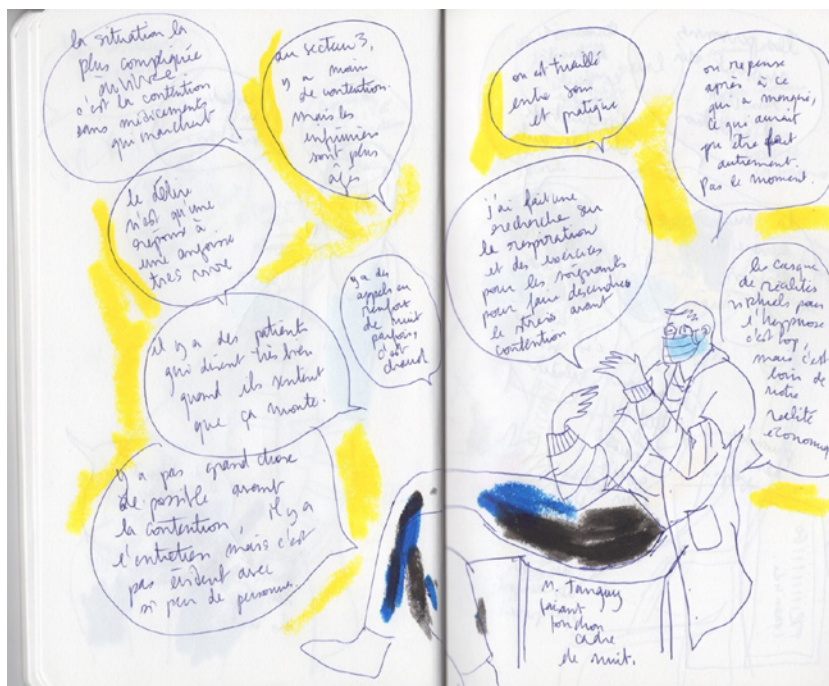 la situation la
plus compliquée
à vivre
c'est la contention
sans médicaments
qui marchent
au secteur 3,
y a moin
de contention.
mais les
infirmiers
sont plus
âgés
le délire
n'est qu'une
réponse à
une angoisse
très vive
y a des
appels en
renfort
de nuit
parfois,
c'est
chaud
il y a des patients
qui disent très bien
quand ils sentent
que ça monte.
y a pas grand chose
de possible avant
la contention, il y a
l'entretien mais c'est
pas évident avec
si peu de personnes.
on est tiraillé
entre soin
et pratique
on repense
après à ce
qui a manqué,
ce qui aurait
pu être fait
autrement.
Pas le moment.
j'ai fait une
recherche sur
la respiration
et des exercices
pour les soignants
pour faire descendre
le stress avant
contention
les casque
de réalités
pour
l'hypnose
c'est top,
mais c'est
loin de
notre
réalité
économique
M. Tanguy
faisant
fonction
cadre
de nuit.